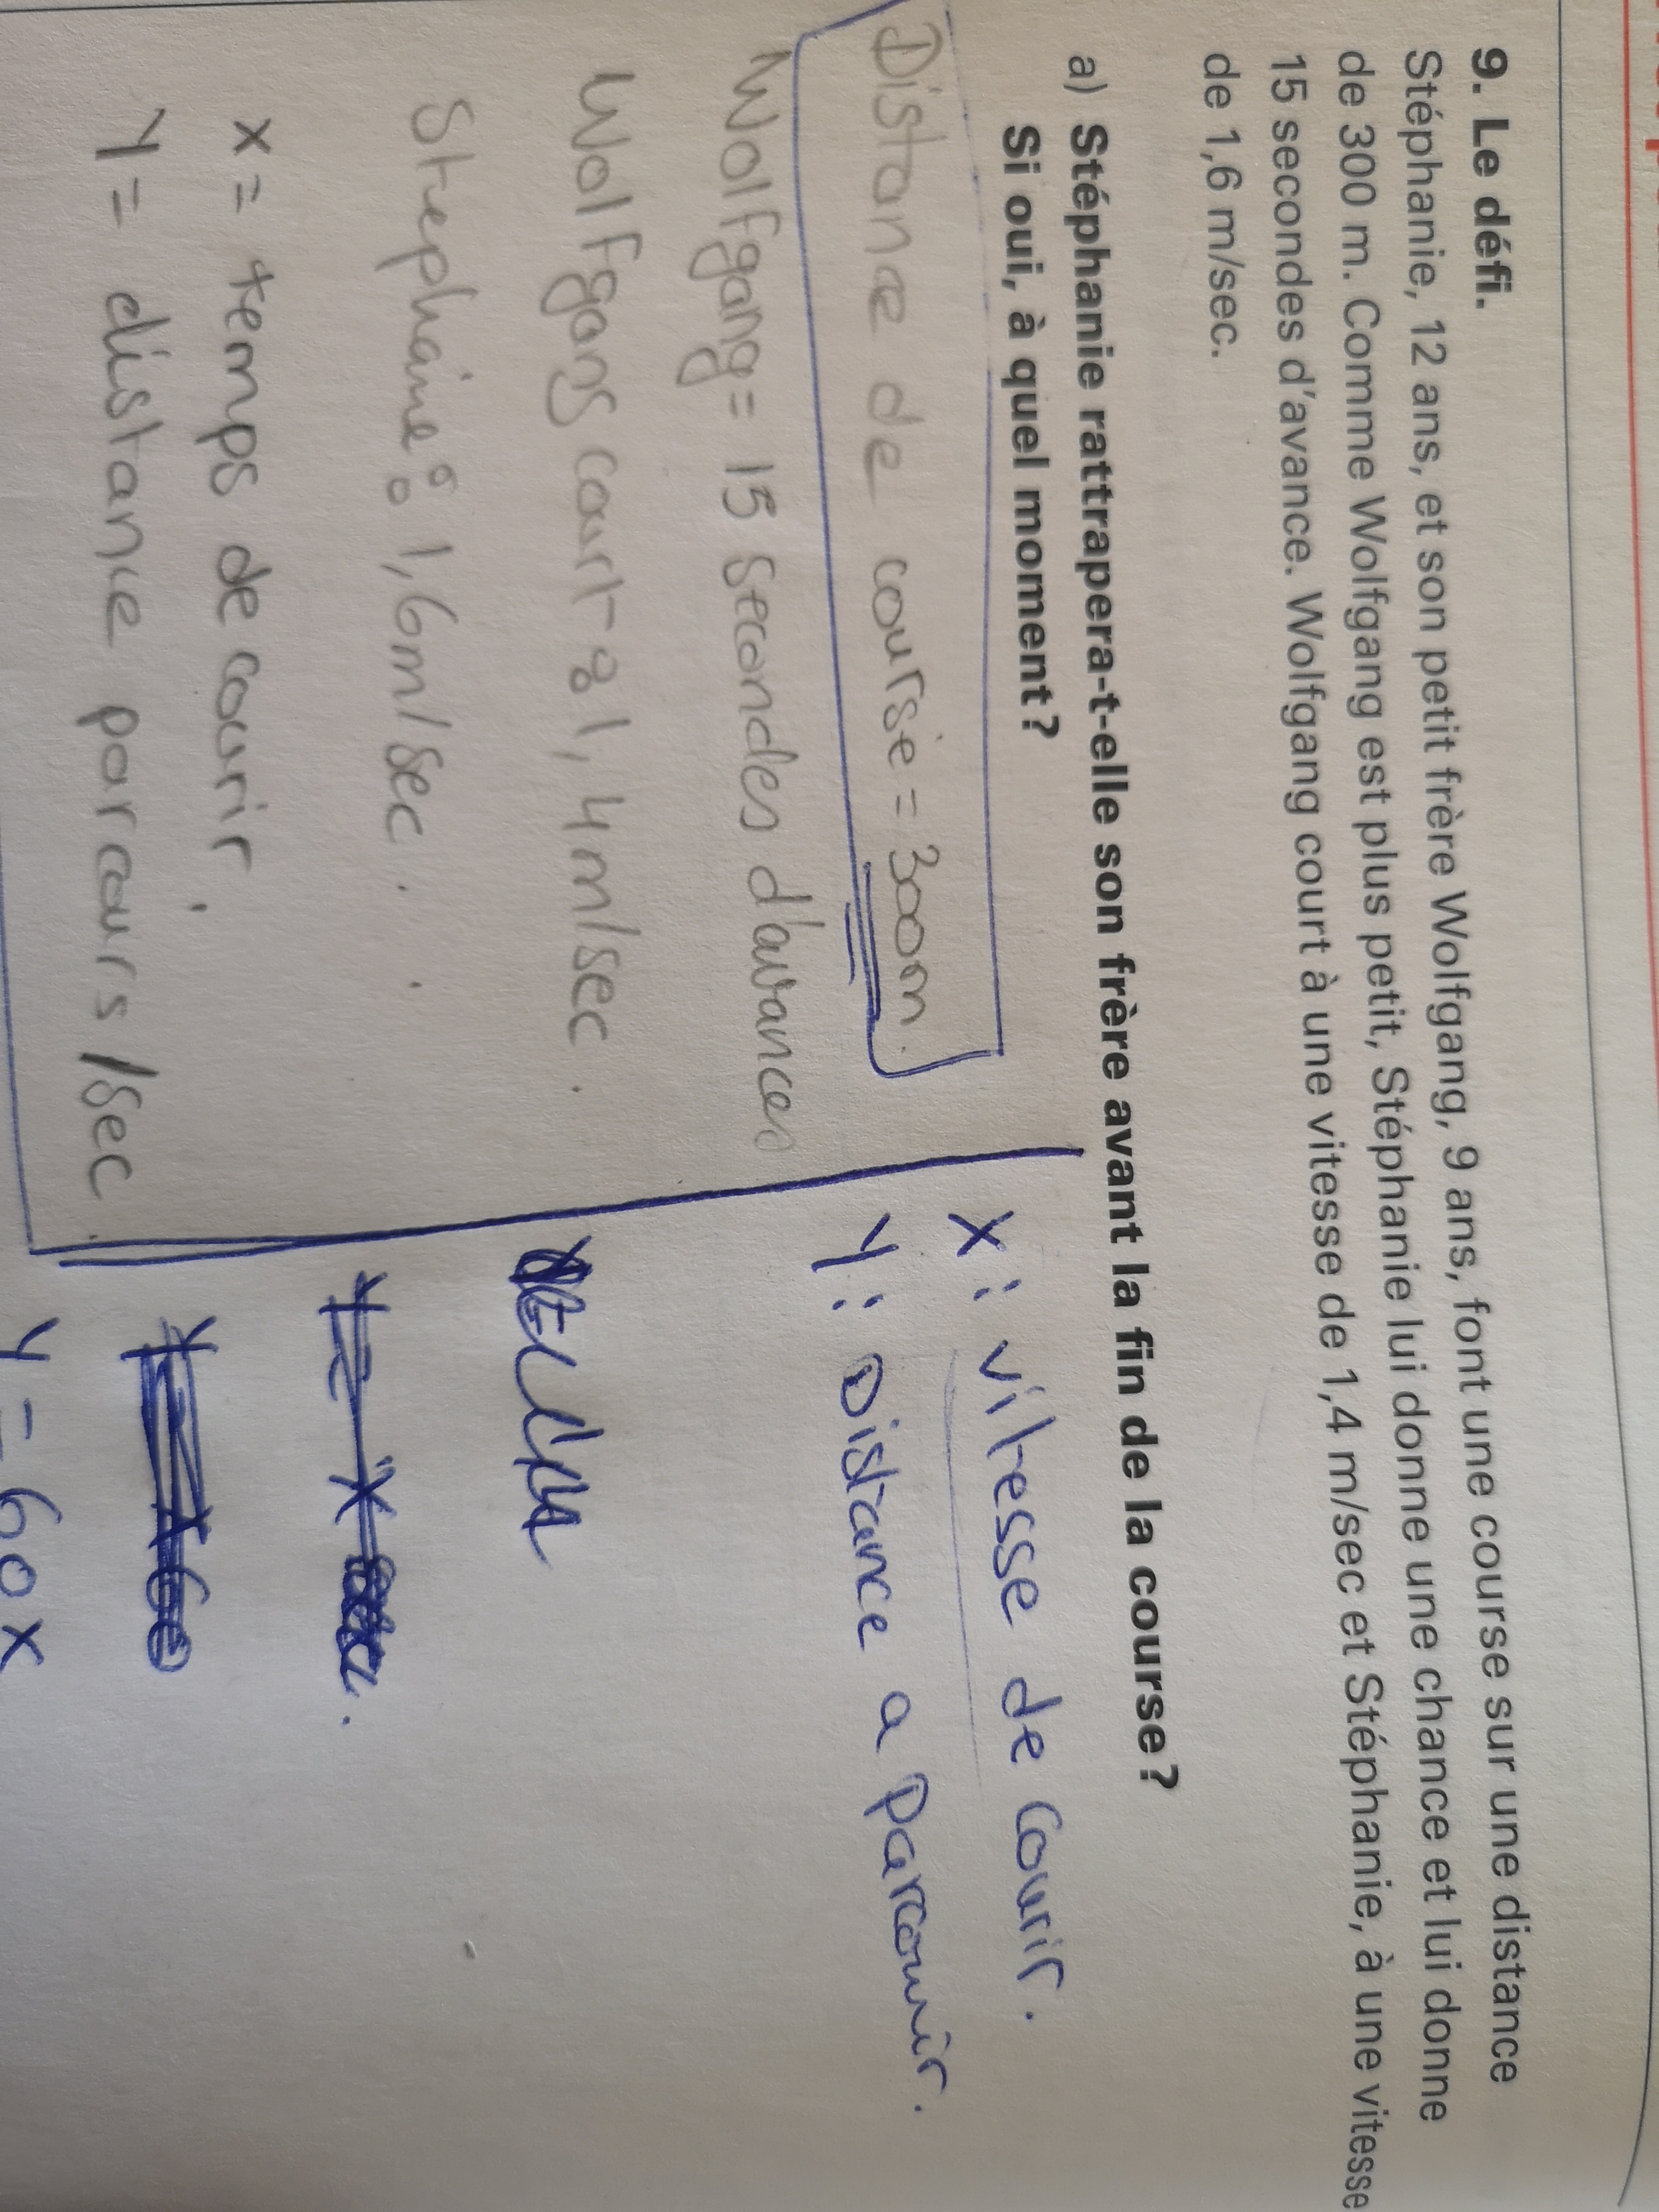 9. Le défi.
Stéphanie, 12 ans, et son petit frère Wolfgang, 9 ans, font une course sur une distance
de 300 m. Comme Wolfgang est plus petit, Stéphanie lui donne une chance et lui donne
15 secondes d'avance. Wolfgang court à une vitesse de 1,4 m/sec et Stéphanie, à une vitesse
de 1,6 m/sec.
a) Stéphanie rattrapera-t-elle son frère avant la fin de la course?
Si oui, à quel moment?
Distance de course = 300m.
Wolfgang = 15 secondes d'avances
Wolfgang court : 1,4m/sec.
Stephanie : 1,6m/sec.
x = temps de courir
y = distance parcours/sec
x : vitesse de courir.
y : Distance a parcourir.
y = 60x